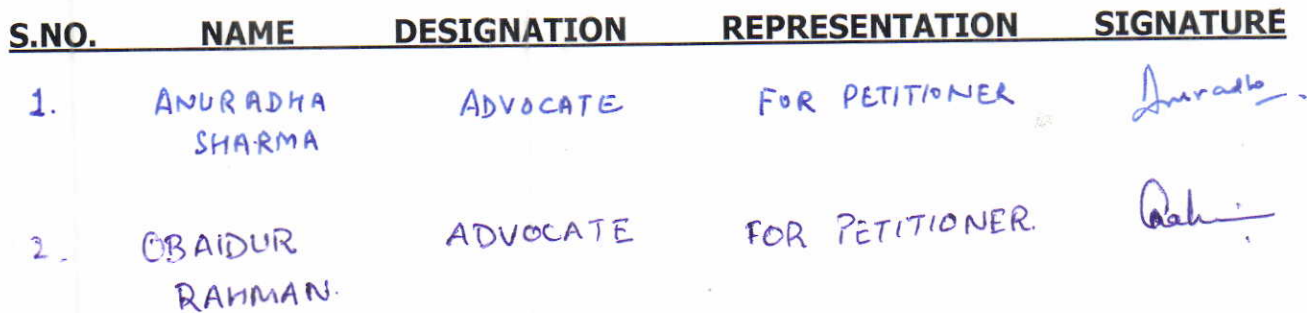 S.NO. NAME DESIGNATION REPRESENTATION SIGNATURE
1. ANURADHA ADVOCATE FOR PETITIONER Anuradha
SHARMA
2. OBAIDUR ADVOCATE FOR PETITIONER.
RAHMAN.